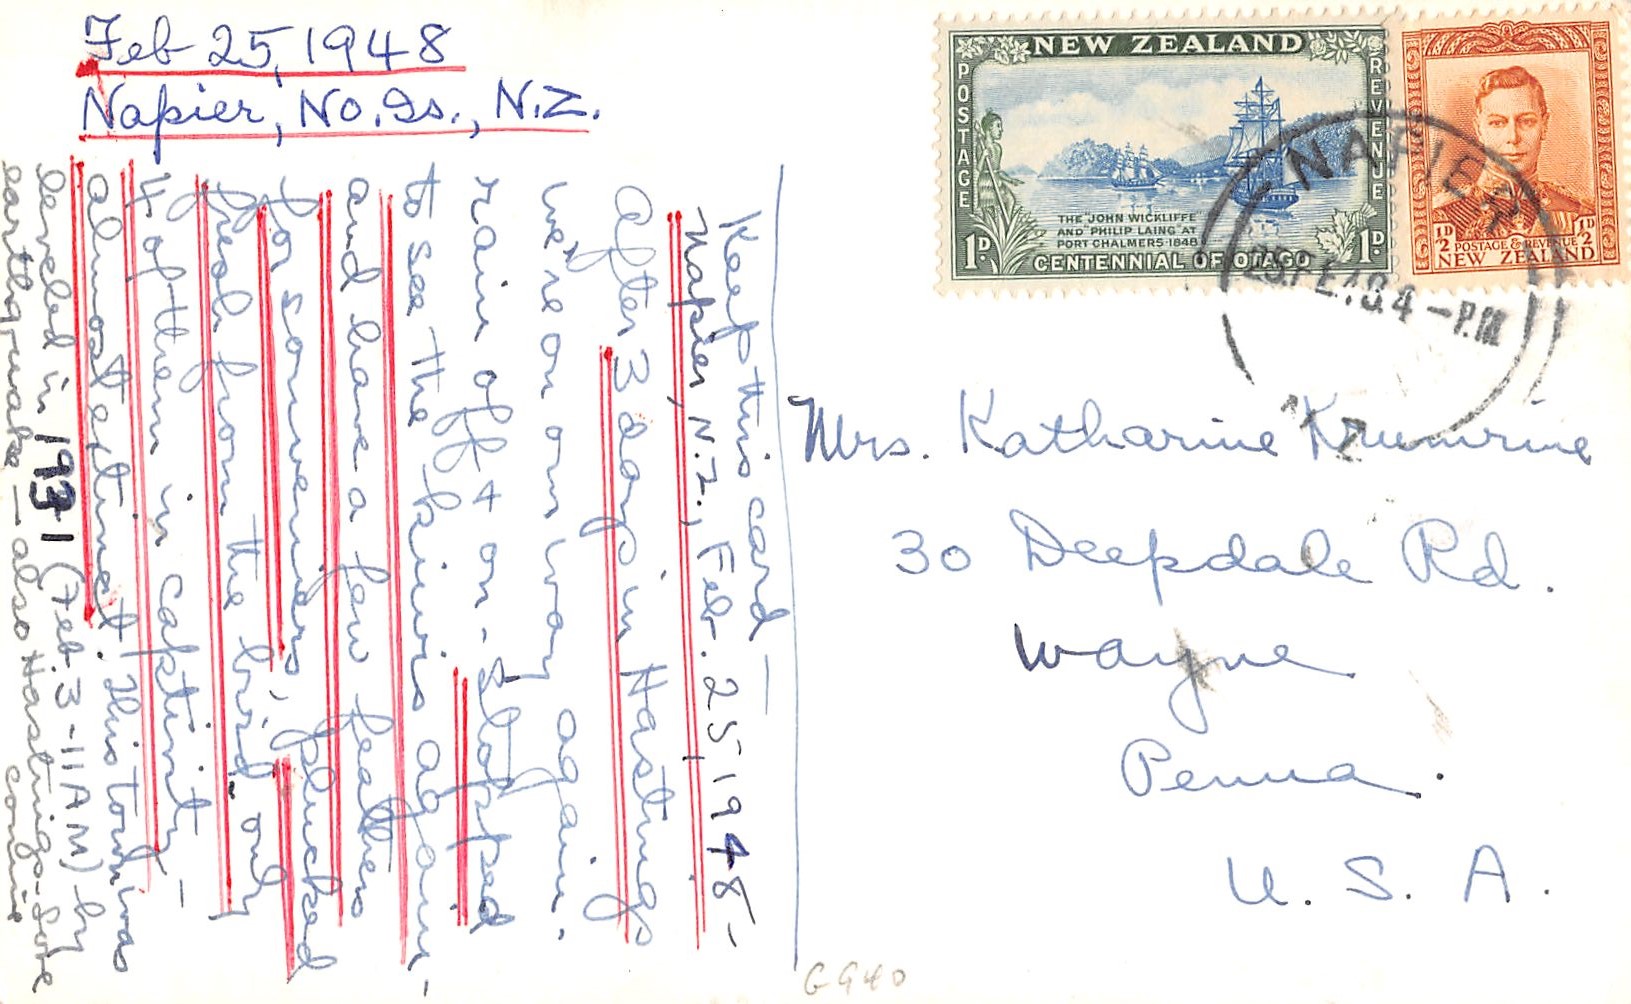 Feb 25, 1948
Napier, No. Is., N.Z.
Keep this card —
Napier, N.Z., Feb. 25, 1948 -
After 3 days in Hastings
we're on our way again.
rain off & on. Stopped
to see the kiwis again,
and have a few feathers
for souvenirs, plucked
fresh from the bird - only
4 of them in captivity -
almost extinct. This town was
leveled in 1931 (Feb. 3 - 11 AM) by
earthquake - also Hastings - Love
Connie
NEW ZEALAND
POSTAGE
REVENUE
THE 'JOHN WICKLIFFE'
AND 'PHILIP LAING' AT
PORT CHALMERS·1848
1D
1D
CENTENNIAL OF OTAGO
1/2D
1/2D
POSTAGE & REVENUE
NEW ZEALAND
NAPIER
25 FE 48 4 - P.M
N Z
Mrs. Katharine Krumrine
30 Deepdale Rd.
Wayne
Penna.
U. S. A.
G940